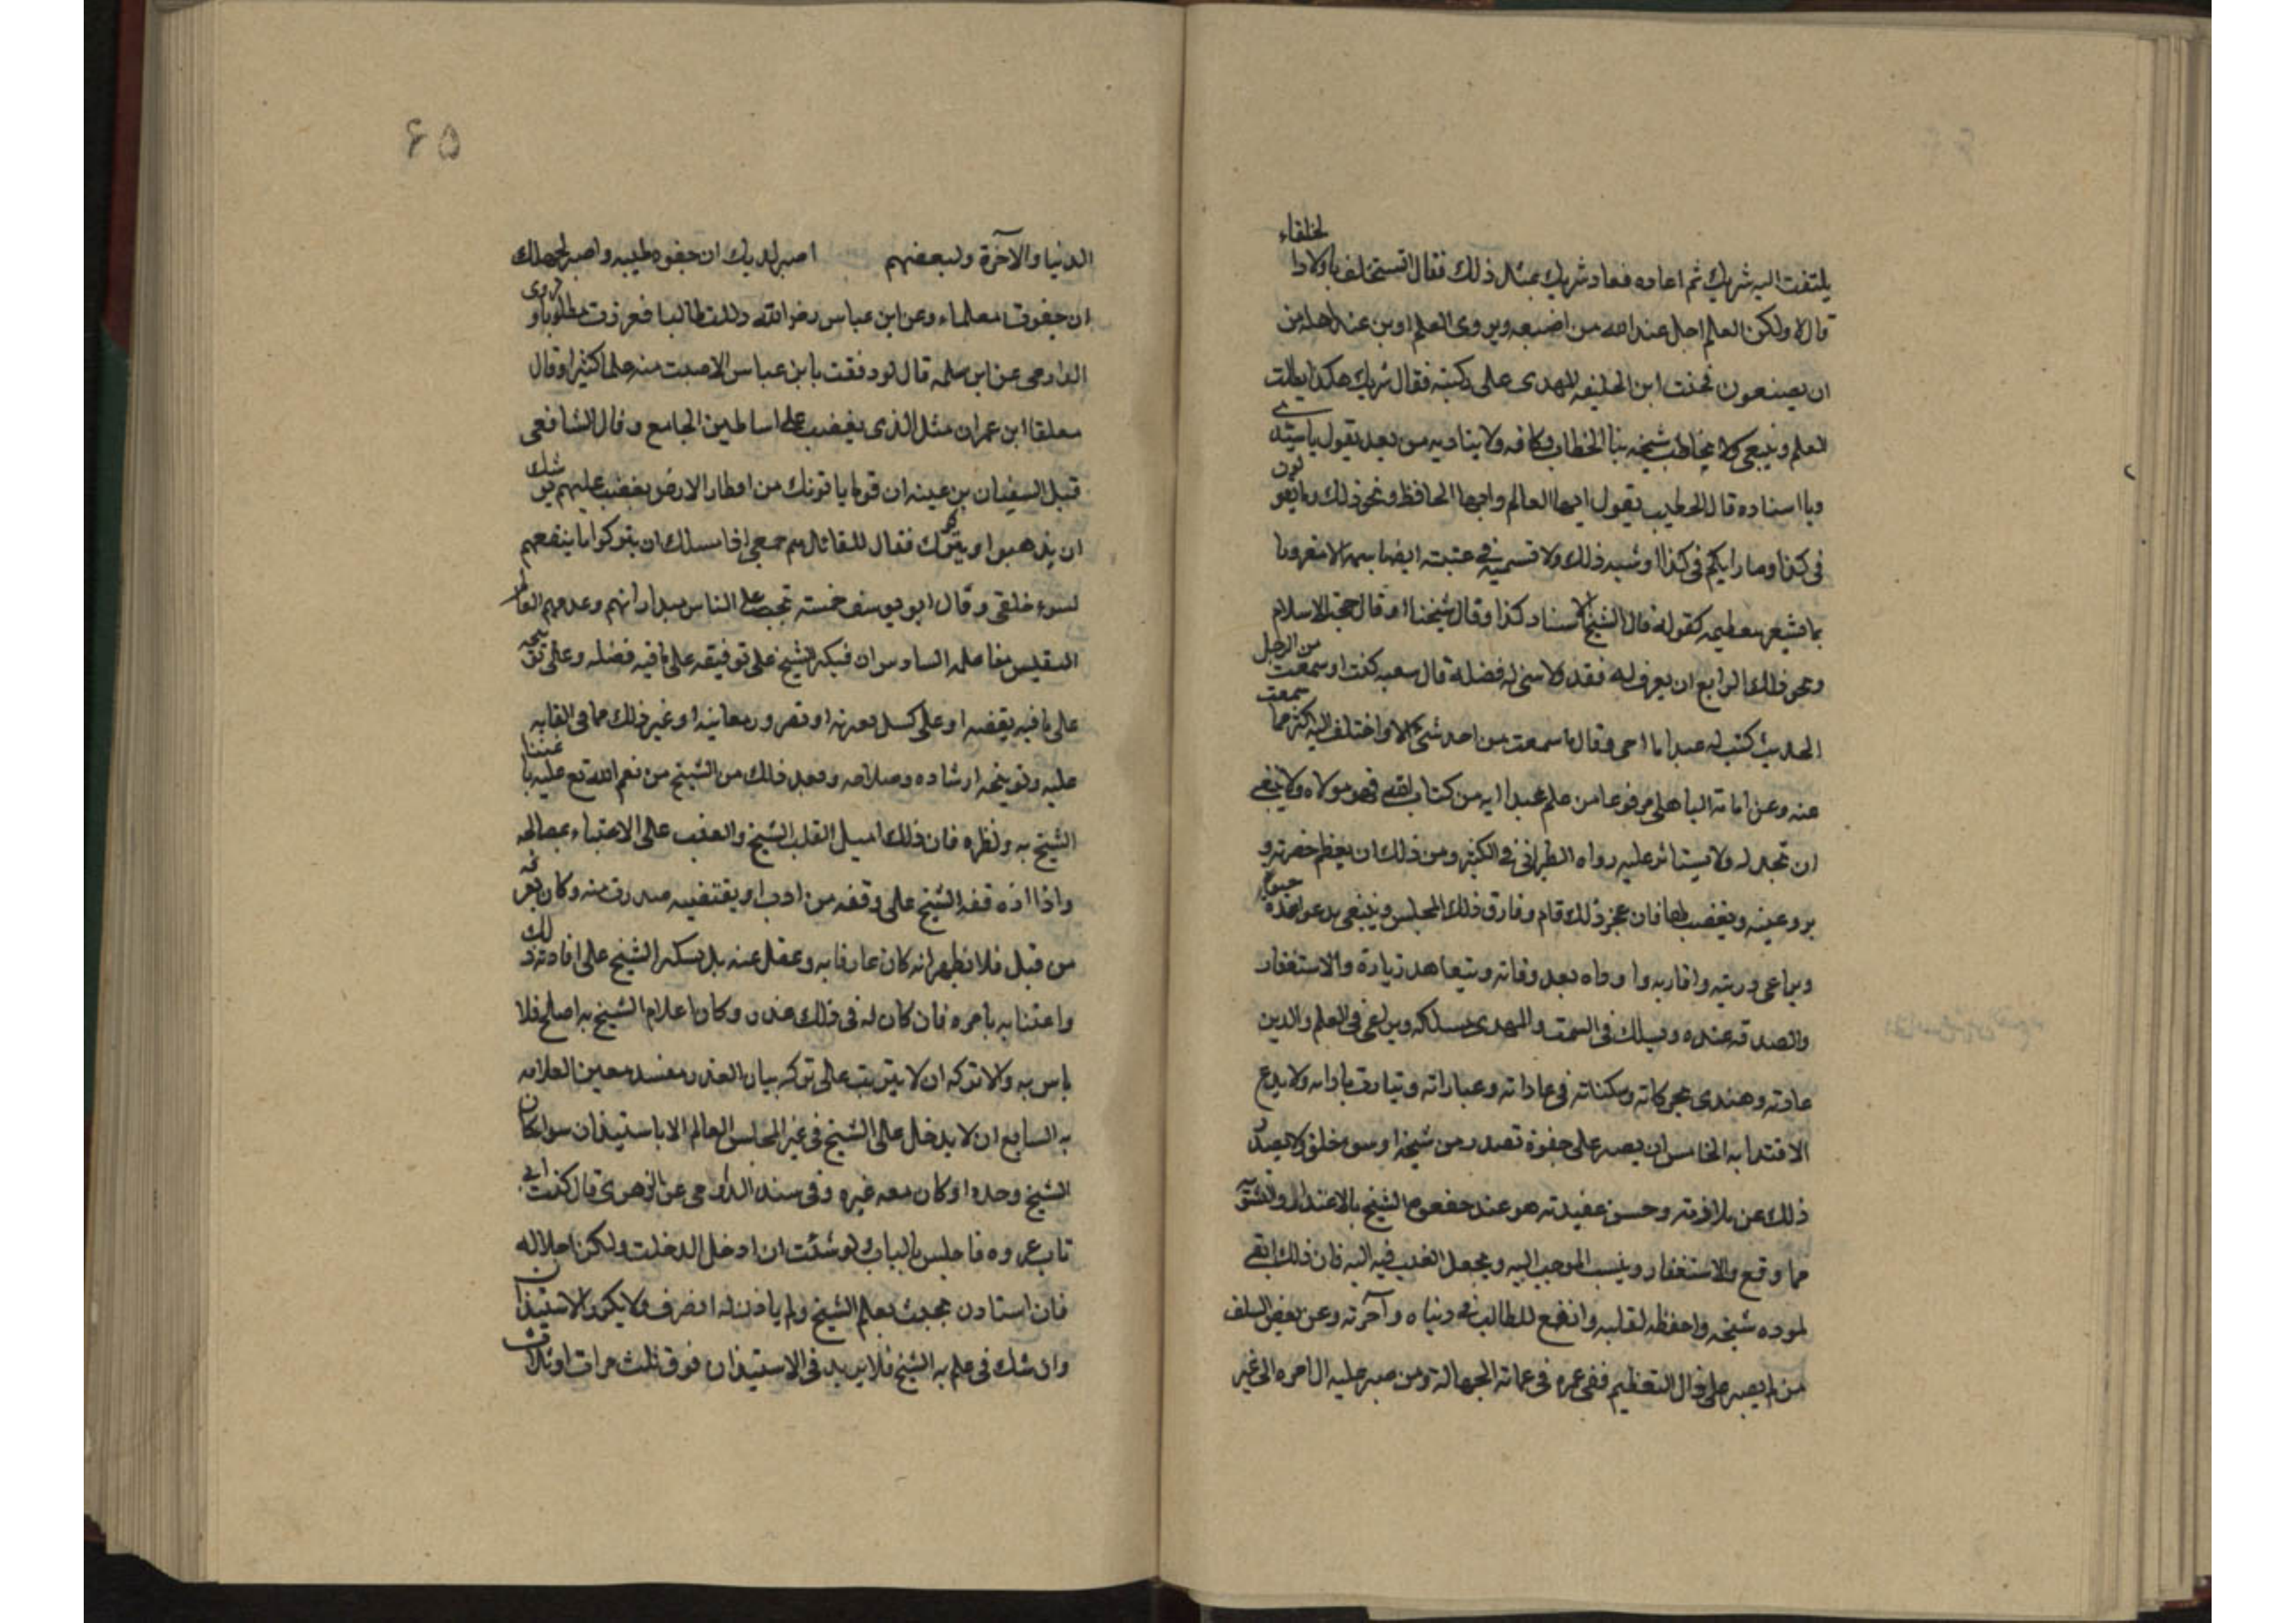 يلتفت اليه شريك ثم اعاده فعاد شريك بمثل ذلك فقال اتستخلف باولاد الخلفاء
قال لا ولكن العلم اجل عند الله من اضيعه ويروى العلم اوين عند اهله من
ان يصنعون فجئت ابن الخليفه المهدى على ركبته فقال شريك هكذا يطلب
العلم وينبغى ولا يخاطب شيخه بتا الخطاب وكافه ولا يناديه من بعد يقول يا سيدى
ويا استاده قال الخطيب يقول ايها العالم وايها الحافظ ونحو ذلك وما يقولون
فى كذا وما رايكم فى كذا وشبه ذلك ولا تسميه فى غيبته ايضا باسمه الا مقرونا
بما يشعر بتعظيمه كقوله قال الشيخ الاستاد كذا وقال شيخنا او قال حجة الاسلام
ونحو ذلك الرابع ان يعرف له فقد ولا ينسى له فضله قال شعبه كنت اذ سمعت من الرجل
الحديث كنت له عبدا ما احى وقال ما سمعت من احد شيئ الا واختلف اليه اكثر مما سمعت
عنه وعن امامة الباهلى مرفوعا من علم عبدا ايه من كتاب الله فهو مولاه ولا ينبغى
ان تجد له ولا يستاثر عليه رواه الطبرانى فى الكبير ومن ذلك ان يعظم حضرته و
يرد غيبته ويغضب لها فان عجز ذلك قام وفارق ذلك المجلس وينبغى يدعو له مدة حيوته
ويراعى ذريته واقاربه واوداه بعد وفاته ويتعاهد زيارة والاستغفار
والصدقه عنده ويسلك فى السمت والهدى مسلكه ويراعى فى العلم والدين
عادته وهندى بحركاته وسكناته فى عاداته وعباراته ويتادب بادابه ولا يدع
الاقتدا به الخامس ان يصبر على جفوة تصدر من شيخه او سو خلق ولا يصد
ذلك عن ملازمته وحسن عقيدته هو عند جفوه الشيخ بالاعتذار والتشوق
مما وقع والاستغفار وينسب الموجب اليه ويجعل العتب فيه اليه فان ذلك ابقى
لموده شيخه واحفظه لقلبه وانفع للطالب فى دنياه وآخرته وعن بعض السلف
من لم يصبر على ذال التعظيم ففى عمره فى عماته الجهالة ومن صبر عليه ال امره الى غير
۶۵
الدنيا والآخرة ولبعضهم اصبر لديك ان جفوه طبيبه واصبر لجهلك
ان جفوت معلماء وعن ابن عباس رضى الله دللت طالبا فعززت مطلوبا وروى
الدارمى عن ابن سلمه قال لو رفقت بابن عباس لاصبت منه علما كثيرا وقال
معلقا ابن عمران مثل الذى يغضب على اساطين الجامع وقال الشافعى
قيل السفيان بن عينه ان قوما ياتونك من اقطار الارض بغضب عليهم يوشك
ان يذهبوا او يتركوك فقال للقائل هم حمقى اذا مسلك ان يتركوا ما ينفعهم
لسوء خلقى وقال ابو يوسف خمسة تجب على الناس مداراتهم وعد منهم العالم
السادس ان فيكر الشيخ على توفيقه على ما فيه فضله وعلى توبيخه
على ما فيه يقضه او على كسل يعرته او تصرور معاينه او غير ذلك مما فى القابه
عليه وتوبيخه ارشاده وصلاحه وبعد ذلك من الشيخ من نعم الله تع عليه باعتنا
الشيخ به ونظره فان ذلك اميل القلب الشيخ والعتب على الاعتباء بمصالحه
واذا اذه قفه الشيخ على وقفه من ادب او يقتفيه صدرت منه وكان يعرفه
من قبل فلا تظهر انه كان عارفا به وعقل عنه بل يسكر الشيخ على افادته ذلك
واعتنا به بامره فان كان له فى ذلك عذر وكان اعلام الشيخ به اصلح فلا
باس به والا تركه ان لا يترتب على تركه بيان العذر مفسد معين العلامه
به السابع ان لا يدخل على الشيخ فى غير المجلس العالم الا باستيذان سوا كان
الشيخ وحده او كان معه غيره وفى سند الدارمى عن الزهرى قال كنت اتى
تاب عروه فاجلس بالباب ولو شئت ان ادخل لدخلت ولكن اجلاله
فان استاذن بحيث يعلم الشيخ ولم ياذن له انصرف ولا يكرر الاستيذان
وان شك فى علم به الشيخ فلا يزيد فى الاستيذان فوق ثلث مرات او ثلاث